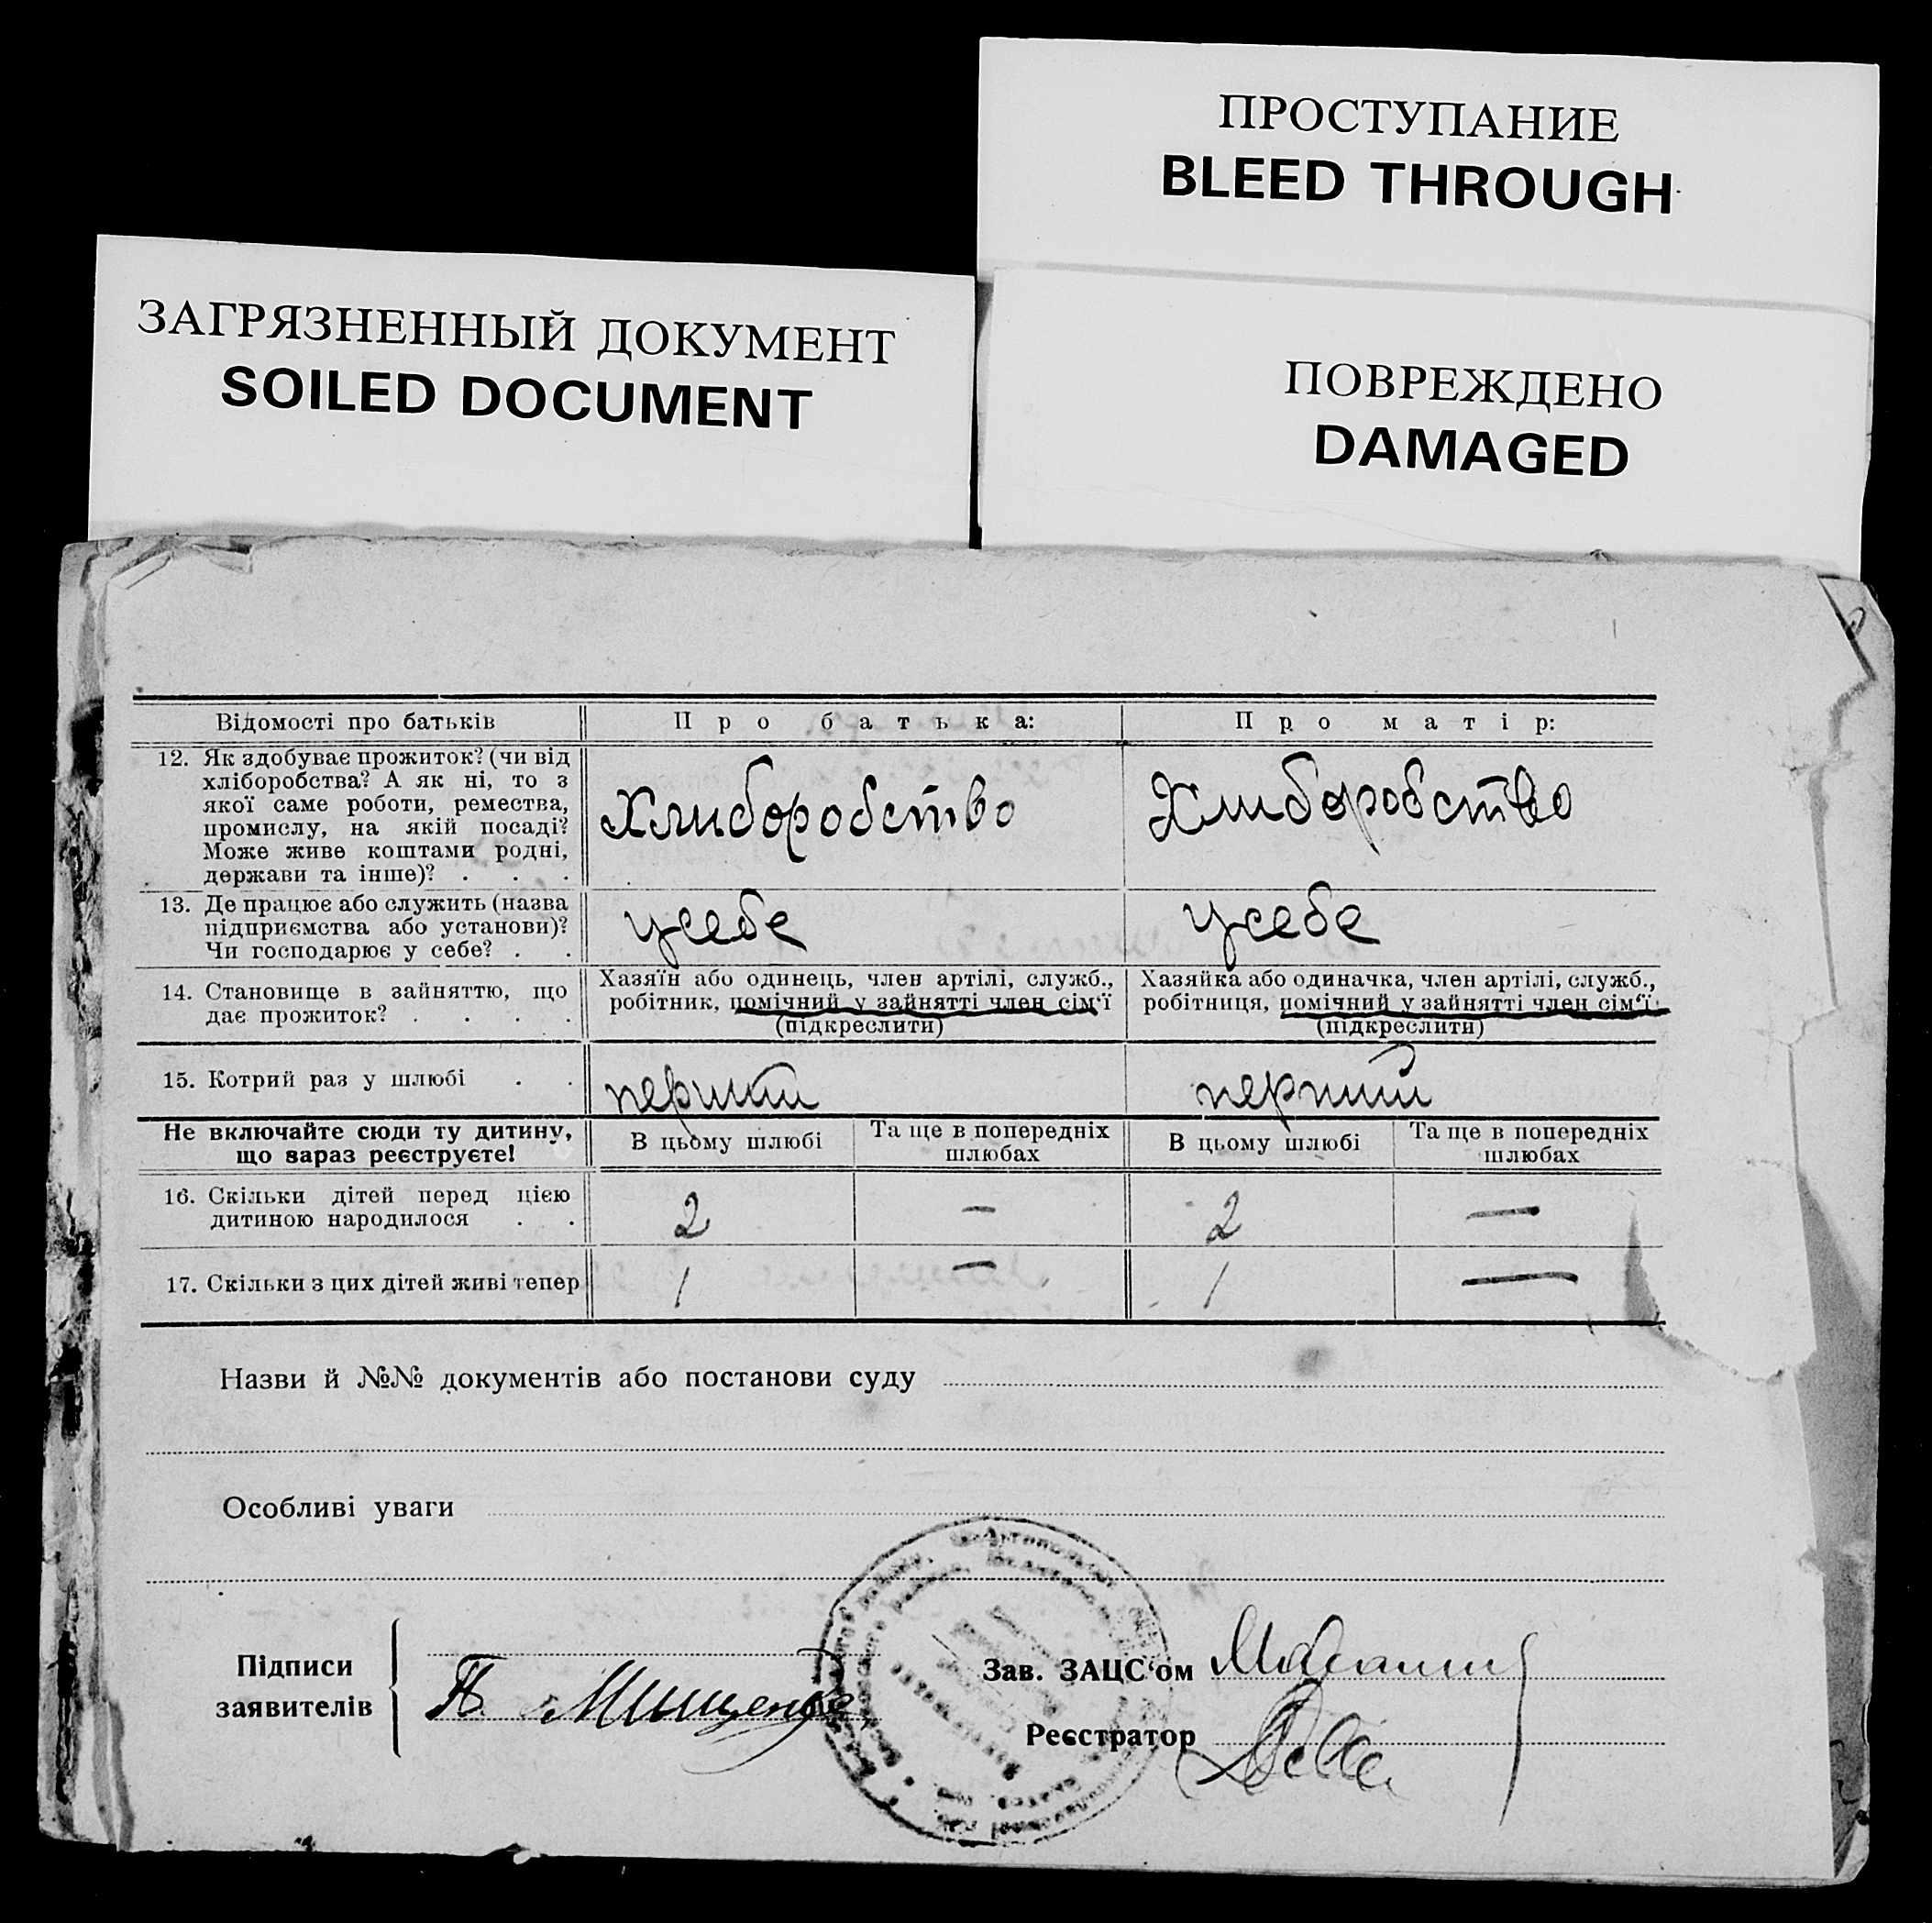 ПРОСТУПАНИЕ
BLEED THROUGH
ЗАГРЯЗНЕННЫЙ ДОКУМЕНТ
SOILED DOCUMENT
ПОВРЕЖДЕНО
DAMAGED
Відомості про батьків Про батька: Про матір:
12. Як здобуває прожиток? (чи від
хліборобства? А як ні, то з
якої саме роботи, ремества,
промислу, на якій посаді?
Може живе коштами родні,
держави та інше)? . . .
Хлиборобство Хлиборобство
13. Де працює або служить (назва
підприємства або установи)?
Чи господарює у себе? . .
усебе усебе
14. Становище в зайняттю, що
дає прожиток? . . . .
Хазяїн або одинець, член артілі, служб.,
робітник, помічний у зайнятті член сім‘ї
(підкреслити)
Хазяйка або одиначка, член артілі, служб.,
робітниця, помічний у зайнятті член сім‘ї
(підкреслити)
15. Котрий раз у шлюбі . . перший перший
Не включайте сюди ту дитину,
що зараз реєструєте!
В цьому шлюбі Та ще в попередніх
шлюбах
В цьому шлюбі Та ще в попередніх
шлюбах
16. Скільки дітей перед цією
дитиною народилося . .
2 — 2 —
17. Скільки з цих дітей живі тепер 1 — 1 —
Назви й №№ документів або постанови суду
Особливі уваги
Підписи
заявителів
П. Мищенко
Зав. ЗАЦС‘ом
Реєстратор